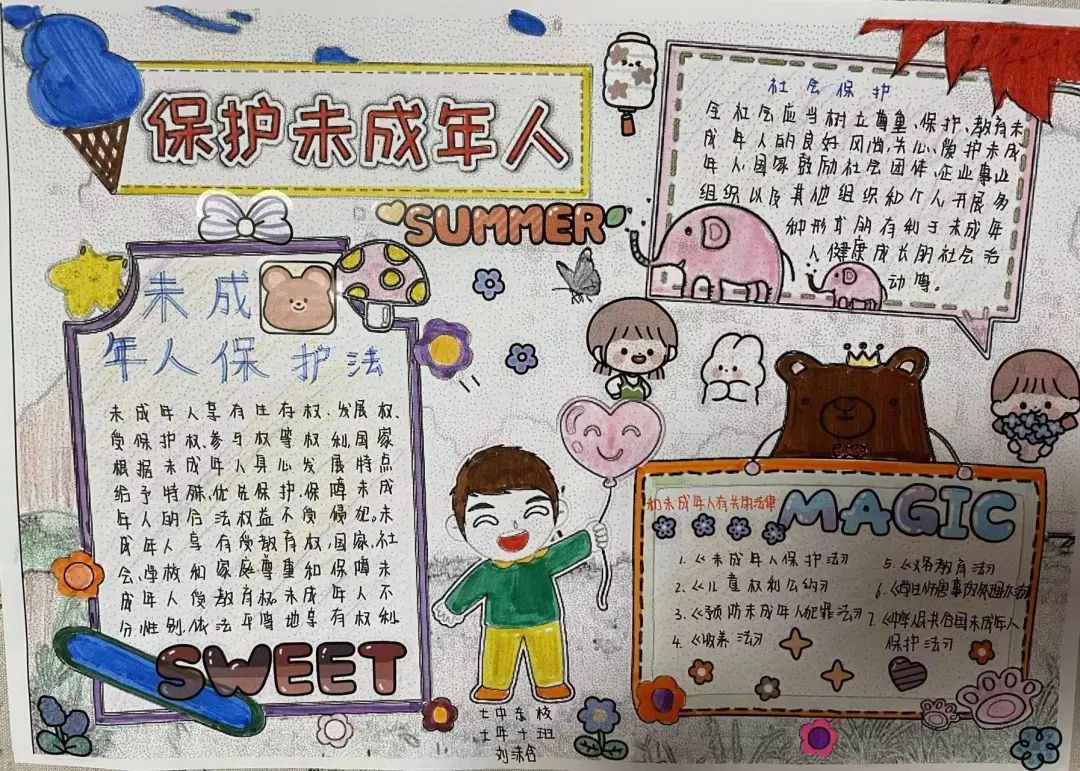 保护未成年人
SUMMER
社会保护
全社会应当树立尊重、保护、教育未
成年人的良好风尚,关心、爱护未成
年人,国家鼓励社会团体、企业事业
组织以及其他组织和个人开展多
种形式的有利于未成年
人健康成长的社会活
动。
未成
年人保护法
未成年人享有生存权、发展权、
受保护权、参与权等权利,国家
根据未成年人身心发展特点
给予特殊、优先保护,保障未成
年人的合法权益不受侵犯。未
成年人享有受教育权,国家、社
会、学校和家庭尊重和保障未
成年人受教育权。未成年人不
分性别,依法平等地享有权利
SWEET
和未成年人有关的法律
MAGIC
1.《未成年人保护法》
2.《儿童权利公约》
3.《预防未成年人犯罪法》
4.《收养法》
5.《义务教育法》
6.《学生伤害事故处理办法》
7.《中华人民共和国未成年人
保护法》
七中东校
七年十班